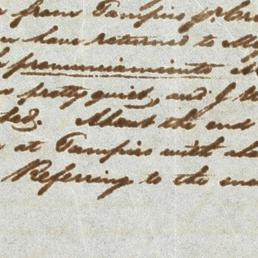 from Tampico pr
have returned to
pronunciamiento
pretty quiet, and I
About the end
at Tampico with
Referring to the